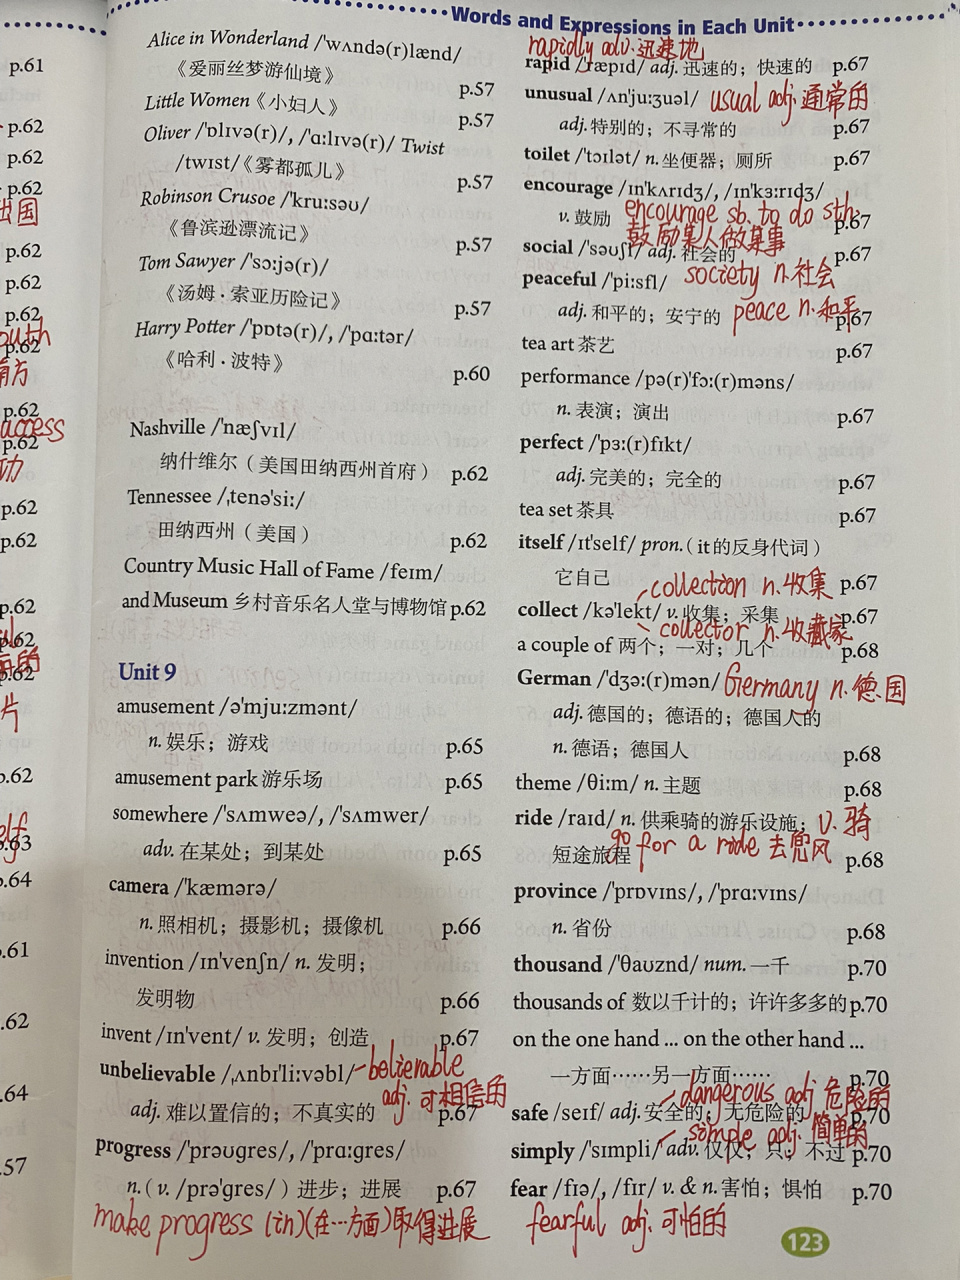 Words and Expressions in Each Unit
p.61
p.62
p.62
p.62
出国
p.62
p.62
p.62
p.62
南方
p.62
p.62
功
p.62
p.62
p.62
p.62
p.62
片
p.62
p.63
.64
.61
.62
.64
.57
Alice in Wonderland /ˈwʌndə(r)lænd/
《爱丽丝梦游仙境》 p.57
Little Women《小妇人》 p.57
Oliver /ˈɒlɪvə(r)/, /ˈɑːlɪvə(r)/ Twist
/twɪst/《雾都孤儿》 p.57
Robinson Crusoe /ˈkruːsəʊ/
《鲁滨逊漂流记》 p.57
Tom Sawyer /ˈsɔːjə(r)/
《汤姆·索亚历险记》 p.57
Harry Potter /ˈpɒtə(r)/, /ˈpɑːtər/
《哈利·波特》 p.60
Nashville /ˈnæʃvɪl/
纳什维尔（美国田纳西州首府） p.62
Tennessee /ˌtenəˈsiː/
田纳西州（美国） p.62
Country Music Hall of Fame /feɪm/
and Museum 乡村音乐名人堂与博物馆 p.62
Unit 9
amusement /əˈmjuːzmənt/
n. 娱乐；游戏 p.65
amusement park 游乐场 p.65
somewhere /ˈsʌmweə/, /ˈsʌmwer/
adv. 在某处；到某处 p.65
camera /ˈkæmərə/
n. 照相机；摄影机；摄像机 p.66
invention /ɪnˈvenʃn/ n. 发明；
发明物 p.66
invent /ɪnˈvent/ v. 发明；创造 p.67
unbelievable /ˌʌnbɪˈliːvəbl/ believable
adj. 可相信的
adj. 难以置信的；不真实的 p.67
progress /ˈprəʊɡres/, /ˈprɑːɡres/
n. ( v. /prəˈɡres/ ) 进步；进展 p.67
make progress (in)(在…方面)取得进展
rapidly adv. 迅速地
rapid /ˈræpɪd/ adj. 迅速的；快速的 p.67
unusual /ʌnˈjuːʒuəl/ usual adj. 通常的
adj. 特别的；不寻常的 p.67
toilet /ˈtɔɪlət/ n. 坐便器；厕所 p.67
encourage /ɪnˈkʌrɪdʒ/, /ɪnˈkɜːrɪdʒ/
v. 鼓励 encourage sb. to do sth. p.67
鼓励某人做某事
social /ˈsəʊʃl/ adj. 社会的 p.67
peaceful /ˈpiːsfl/ society n. 社会
adj. 和平的；安宁的 peace n. 和平 p.67
tea art 茶艺 p.67
performance /pə(r)ˈfɔː(r)məns/
n. 表演；演出 p.67
perfect /ˈpɜː(r)fɪkt/
adj. 完美的；完全的 p.67
tea set 茶具 p.67
itself /ɪtˈself/ pron. ( it 的反身代词 )
它自己 p.67
collection n. 收集
collect /kəˈlekt/ v. 收集；采集 p.67
collector n. 收藏家
a couple of 两个；一对；几个 p.68
German /ˈdʒɜː(r)mən/ Germany n. 德国
adj. 德国的；德语的；德国人的
n. 德语；德国人 p.68
theme /θiːm/ n. 主题 p.68
ride /raɪd/ n. 供乘骑的游乐设施； v. 骑
短途旅程 go for a ride 去兜风 p.68
province /ˈprɒvɪns/, /ˈprɑːvɪns/
n. 省份 p.68
thousand /ˈθaʊznd/ num. 一千 p.70
thousands of 数以千计的；许许多多的 p.70
on the one hand ... on the other hand ...
一方面……另一方面…… p.70
dangerous adj. 危险的
safe /seɪf/ adj. 安全的；无危险的 p.70
simple adj. 简单的
simply /ˈsɪmpli/ adv. 仅仅；只；不过 p.70
fear /fɪə/, /fɪr/ v. & n. 害怕；惧怕 p.70
fearful adj. 可怕的
123